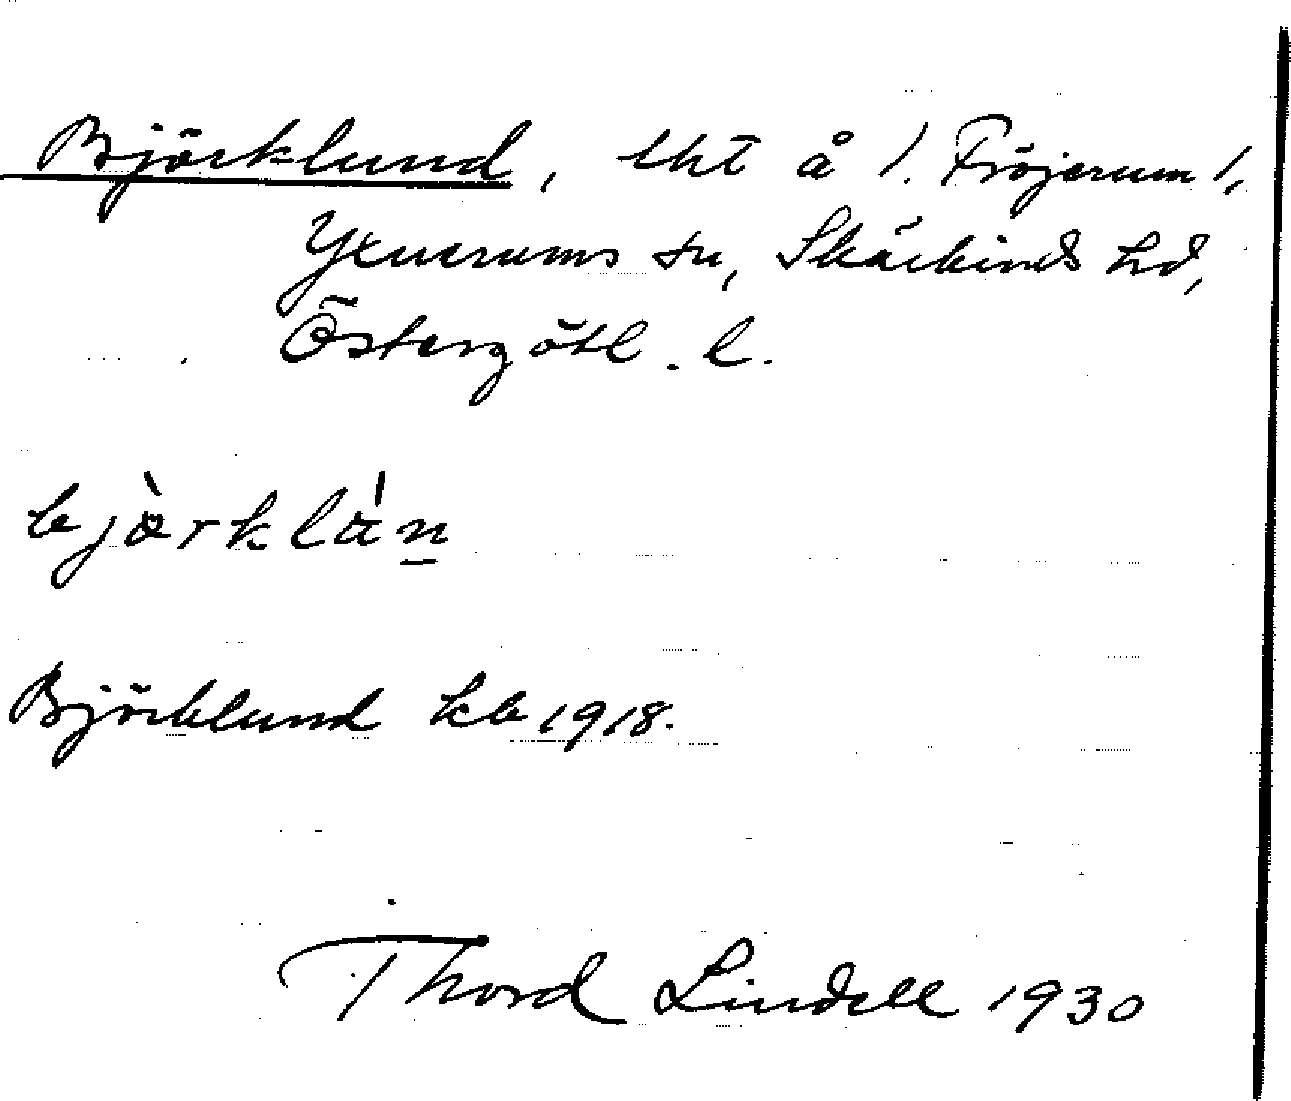 Björklund, lht å 1. Fröjerum 1,
Yxnerums sn, Skärkinds hd,
Östergötl. l.
bjò̀rklán
Björklund kb 1918.
Thord Lindell 1930